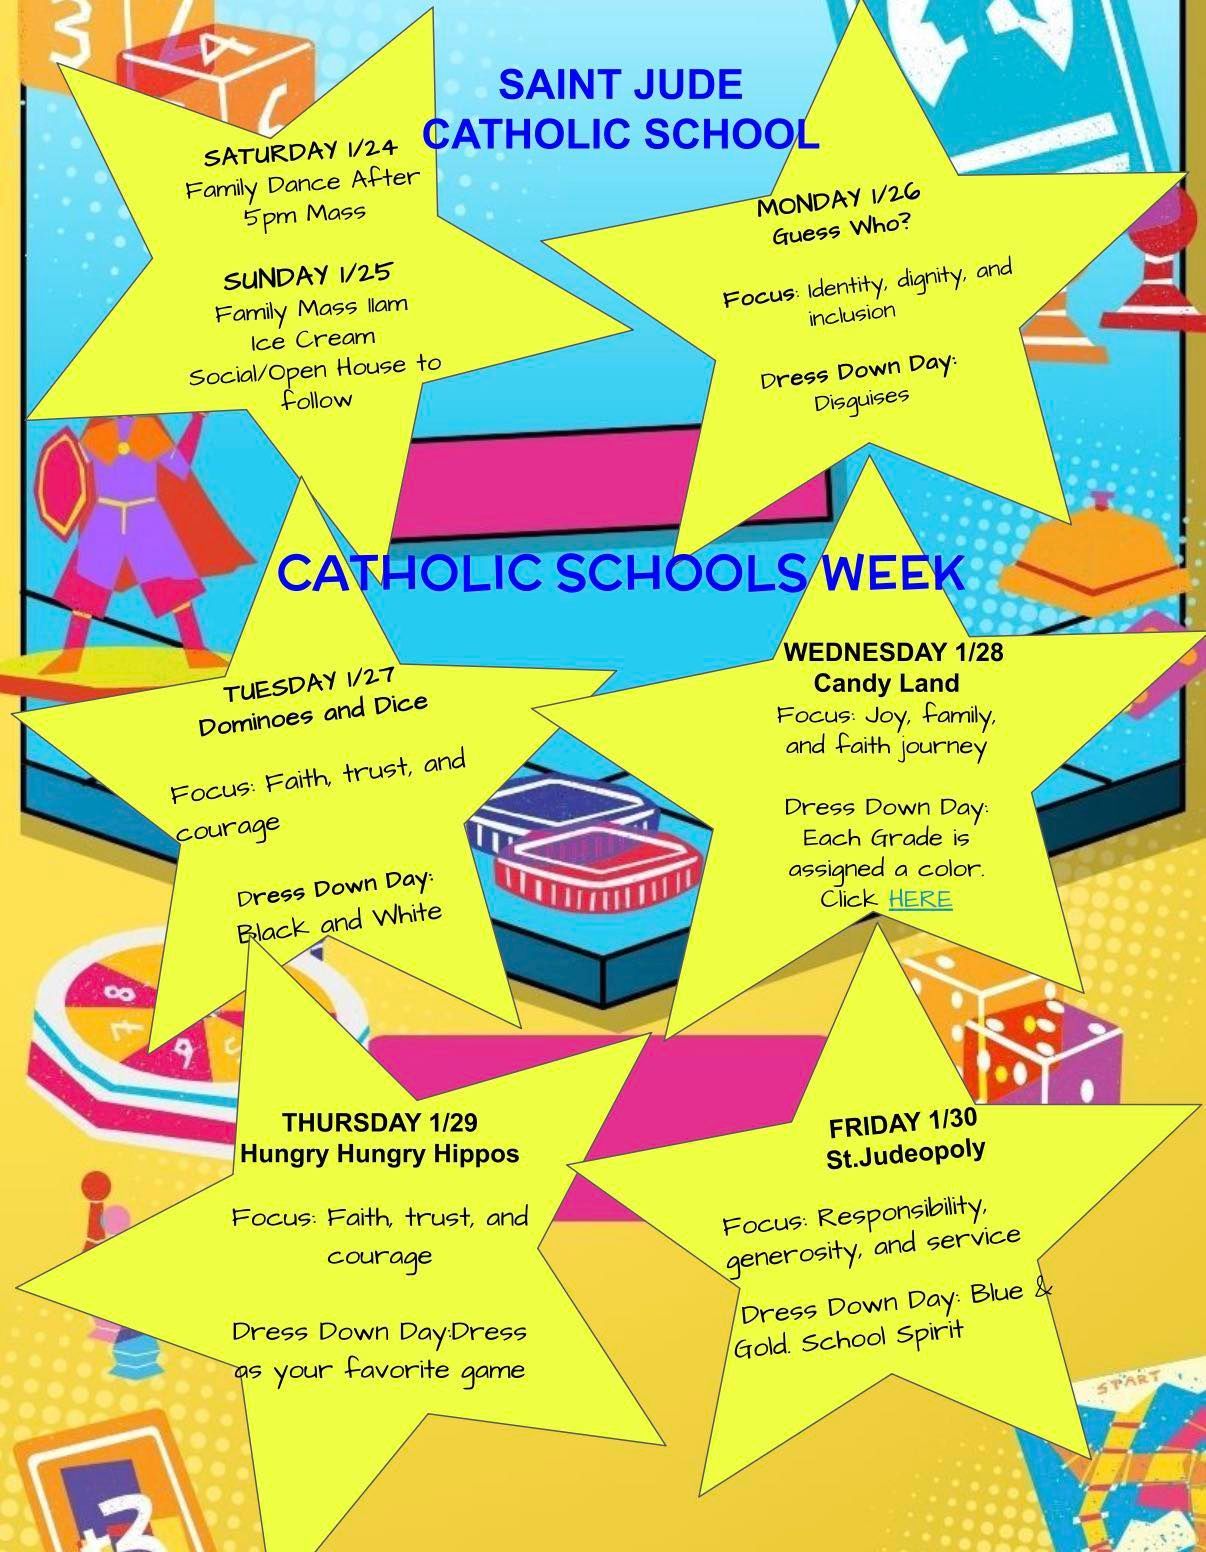 SAINT JUDE
CATHOLIC SCHOOL
SATURDAY 1/24
Family Dance After
5pm Mass
SUNDAY 1/25
Family Mass 11am
Ice Cream
Social/Open House to
follow
MONDAY 1/26
Guess Who?
Focus: Identity, dignity, and
inclusion
Dress Down Day:
Disguises
CATHOLIC SCHOOLS WEEK
TUESDAY 1/27
Dominoes and Dice
Focus: Faith, trust, and
courage
Dress Down Day:
Black and White
WEDNESDAY 1/28
Candy Land
Focus: Joy, family,
and faith journey
Dress Down Day:
Each Grade is
assigned a color.
Click HERE
THURSDAY 1/29
Hungry Hungry Hippos
Focus: Faith, trust, and
courage
Dress Down Day:Dress
as your favorite game
FRIDAY 1/30
St.Judeopoly
Focus: Responsibility,
generosity, and service
Dress Down Day: Blue &
Gold. School Spirit
3
4
8
7
6
START
+3